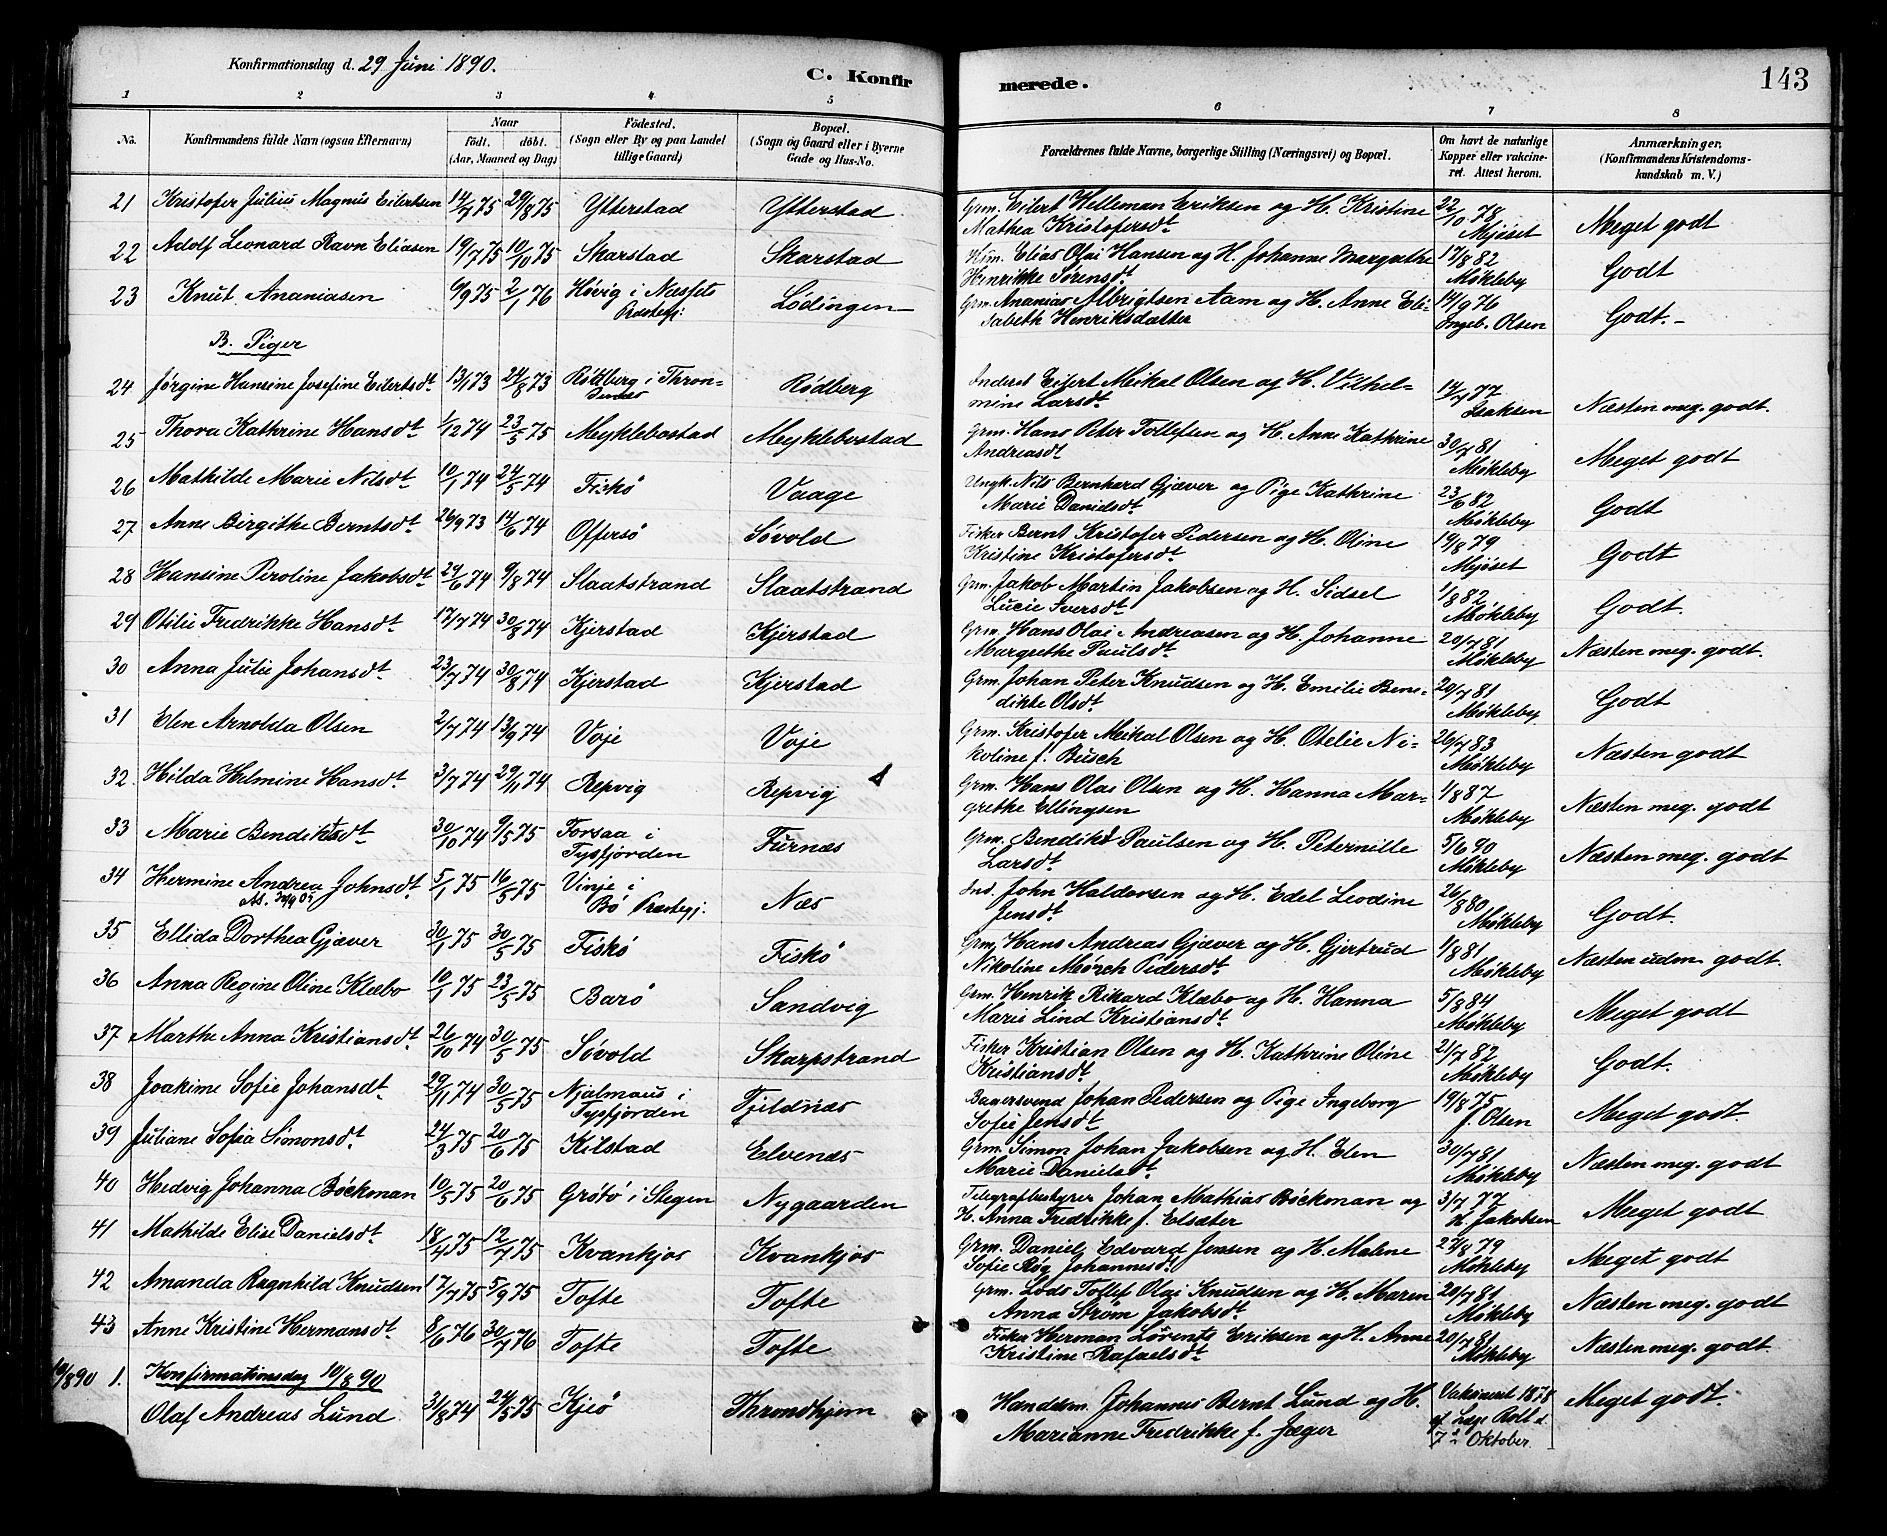 Konfirmationsdag d. 29 Juni 1890.
C. Konfirmerede.
143
1 2 3 4 5 6 7 8
No.
Konfirmandens fulde Navn (ogsaa Efternavn)
Naar
födt. döbt.
(Aar, Maaned og Dag)
Födested.
(Sogn eller By og paa Landet
tillige Gaard)
Bopæl.
(Sogn og Gaard eller i Byerne
Gade og Hus-No.
Forældrenes fulde Navne, borgerlige Stilling (Næringsvei) og Bopæl.
Om havt de naturlige
Kopper eller vakcine-
ret. Attest herom.
Anmærkninger.
(Konfirmandens Kristendoms-
kundskab m. V.)
21 Kristofer Julius Magnus Eilertsen 14/7 75 29/8 75 Ytterstad Ytterstad Grm. Eilert Helleman Eriksen og H. Kristine 22/10 78 Meget godt
Mathea Kristofersdt. Mjøset
22 Adolf Leonard Ravn Eliasen 19/7 75 10/10 75 Skarstad Skarstad Elias Olai Hansen og H. Johanne Margrethe 17/8 82 Godt
Henrikke Sørensdt. Møkleby
23 Knut Ananiasen 6/9 75 2/1 76 Høvig i Næssets Lødingen Grm. Ananias Albrigtsen Aam og H. Anne Eli- 14/9 76 Godt.
Præstegj: sabeth Henriksdatter Ingeb. Olsen
B. Piger
24 Jørgine Hansine Josefine Eilertsdt. 13/1 73 24/8 73 Rødberg i Thron- Rødberg Inderst Eilert Mikal Olsen og H. Vilhel- 14/7 77 Næsten meg. godt.
denes mine Larsdt. Isaksen
25 Thora Kathrine Hansdt. 1/12 74 23/5 75 Meyklebostad Meyklebostad Grm. Hans Peter Tollefsen og H. Anne Kathrine 30/7 81 Meget godt
Andreasdt. Møkleby
26 Mathilde Marie Nilsdt. 10/1 74 24/5 74 Fiskø Vaage Ungk. Nils Bernhard Gjæver og Pige Kathrine 23/6 82 Godt
Marie Danielsdt. Møkleby
27 Anne Birgithe Berntsdt. 26/9 73 14/6 74 Offersø Søvold Fisker Bernt Kristofer Pedersen og H. Oline 19/8 79 Godt
Kristine Kristofersdt. Mjøset
28 Hansine Peroline Jakobsdt. 24/6 74 9/8 74 Slaatstrand Slaatstrand Grm. Jakob Martin Jakobsen og H. Sidsel 1/8 82 Godt.
Lucie Iversdt. Møkleby
29 Otilie Fredrikke Hansdt. 17/7 74 30/8 74 Kjerstad Kjerstad Grm. Hans Olai Andreasen og H. Johanne 20/7 81 Næsten meg. godt.
Margrethe Paulsdt. Møkleby
30 Anna Julie Johansdt. 23/7 74 30/8 74 Kjerstad Kjerstad Grm. Johan Peter Knudsen og H. Emilie Bene- 20/7 81 Godt
dikte Olsdt. Møkleby
31 Elen Arnolda Olsen 2/7 74 13/9 74 Voje Voje Grm. Kristofer Mikal Olsen og H. Otelie Ni- 26/7 83 Næsten godt
koline f. Busch Møkleby
32 Hilda Helmine Hansdt. 3/7 74 29/11 74 Repvig Repvig Grm. Hans Olai Olsen og H. Hanna Mar- 1/8 87 Næsten meg. godt
grethe Ellingsen Møkleby
33 Marie Bendiktsdt. 30/10 74 9/5 75 Forsaa i Furnæs Grm. Bendikt Paulsen og H. Peternille 5/6 90 Næsten meg. godt
Tysfjorden Larsdt. Møkleby
34 Hermine Andrea Johnsdt. 5/1 75 16/5 75 Vinje i Næs Ind. John Haldorsen og H. Edel Leodine 26/8 80 Godt.
Bø Præstegj. Jensdt. Møkleby
35 Ellida Dorthea Gjæver 30/1 75 30/5 75 Fiskø Fiskø Grm. Hans Andreas Gjæver og H. Gjertrud 1/8 81 Næsten udm. godt.
Nikoline Mørch Pedersdt. Møkleby
36 Anna Regine Oline Klæbo 10/1 75 23/5 75 Barø Sandvig Grm. Henrik Rikard Klæbo og H. Hanna 5/8 84 Meget godt
Marie Lind Kristiansdt. Møkleby
37 Marthe Anna Kristiansdt. 26/10 74 30/5 75 Søvold Skarpstrand Fisker Kristian Olsen og H. Kathrine Oline 21/7 82 Godt.
Kristiansdt. Møkleby
38 Joakime Sofie Johansdt. 29/1 74 30/5 75 Njalmaus i Fjeldnæs Bagersvend Johan Pedersen og Pige Ingeborg 19/8 75 Meget godt.
Tysfjorden Sofie Jensdt. J. Olsen
39 Juliane Sofia Simonsdt. 24/3 75 20/6 75 Kilstad Elvenæs Grm. Simon Johan Jakobsen og H. Elen 30/7 81 Næsten meg. godt.
Marie Danielsdt. Møkleby
40 Hedvig Johanna Böckman 10/5 75 20/6 75 Grøtø i Stegen Nygaarden Telegrafbestyrer Johan Mathias Böckman og 3/7 77 Meget godt
H. Anna Fredrikke f. Elsæter L. Jakobsen
41 Mathilde Elise Danielsdt. 18/4 75 12/7 75 Kvankjos Kvankjos Grm. Daniel Edvard Jensen og H. Malene 27/8 79 Meget godt
Sofie Røg Johannesdt. Møkleby
42 Amanda Ragnhild Knudsen 17/7 75 5/9 75 Tofte Tofte Grm. Lods Tollef Olai Knudsen og H. Maren 20/7 81 Næsten meg. godt
Anna Strøm Jakobsdt. Møkleby
43 Anne Kristine Hermansdt. 8/6 76 30/7 76 Tofte Tofte Fisker Herman Lorents Eriksen og H. Anne 20/7 81 Næsten meg. godt.
Kristine Rafaelsdt. Møkleby
10/8 90 1. Konfirmationsdag 10/8 90
Olaf Andreas Lund 31/8 74 24/5 75 Kjeø Throndhjem Handelsm. Johannes Bernt Lund og H. Vakcineret 1878 Meget godt.
Marianne Fredrikke f. Jæger af Læge Roll d.
7de Oktober.